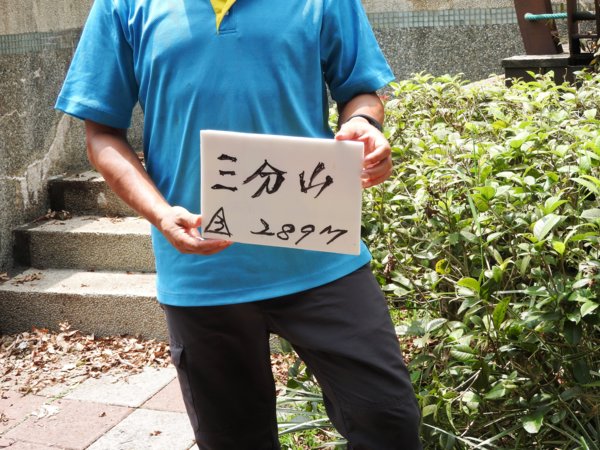 三分山
△3 289M